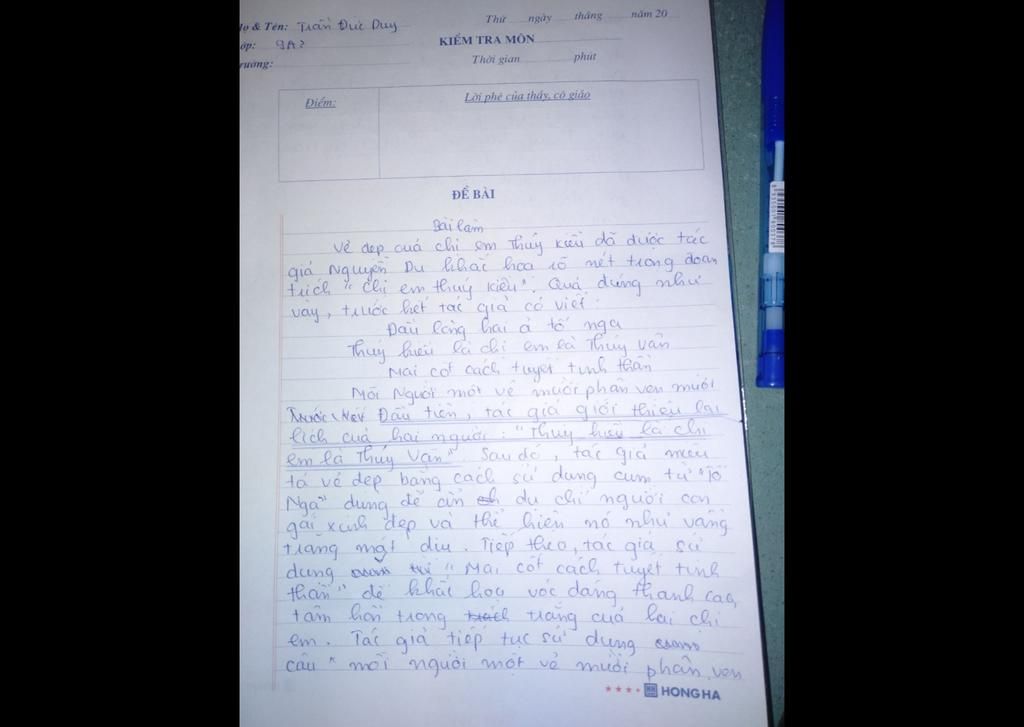 Họ & Tên: Trần Đức Duy
Lớp: 9A2
Trường:
Thứ ngày tháng năm 20
KIỂM TRA MÔN
Thời gian phút
Điểm:
Lời phê của thầy, cô giáo
ĐỀ BÀI
Bài làm
Vẻ đẹp của chị em Thúy Kiều đã được tác
giả Nguyễn Du khắc họa rõ nét trong đoạn
trích " Chị em thuý Kiều". Quả đúng như
vậy, trước hết tác giả có viết :
Đầu lòng hai ả tố nga
Thuý kiều là chị em là Thuý vân
Mai cốt cách tuyết tinh thần
Mỗi Người một vẻ mười phân vẹn mười
Trước Đầu tiên, tác giả giới thiệu lai
lịch của hai người : "Thuý kiều là chị
em là Thuý Vân". Sau đó, tác giả miêu
tả vẻ đẹp bằng cách sử dụng cụm từ "Tố
Nga" dùng để ẩn dụ chỉ người con
gái xinh đẹp và thể hiện nó như vầng
trăng mát dịu. Tiếp theo, tác giả sử
dụng từ "Mai cốt cách tuyết tinh
thần" để khắc họa vóc dáng thanh cao,
tâm hồn trong trách trắng của hai chị
em. Tác giả tiếp tục sử dụng
câu " mỗi người một vẻ mười phân vẹn
HONG HA